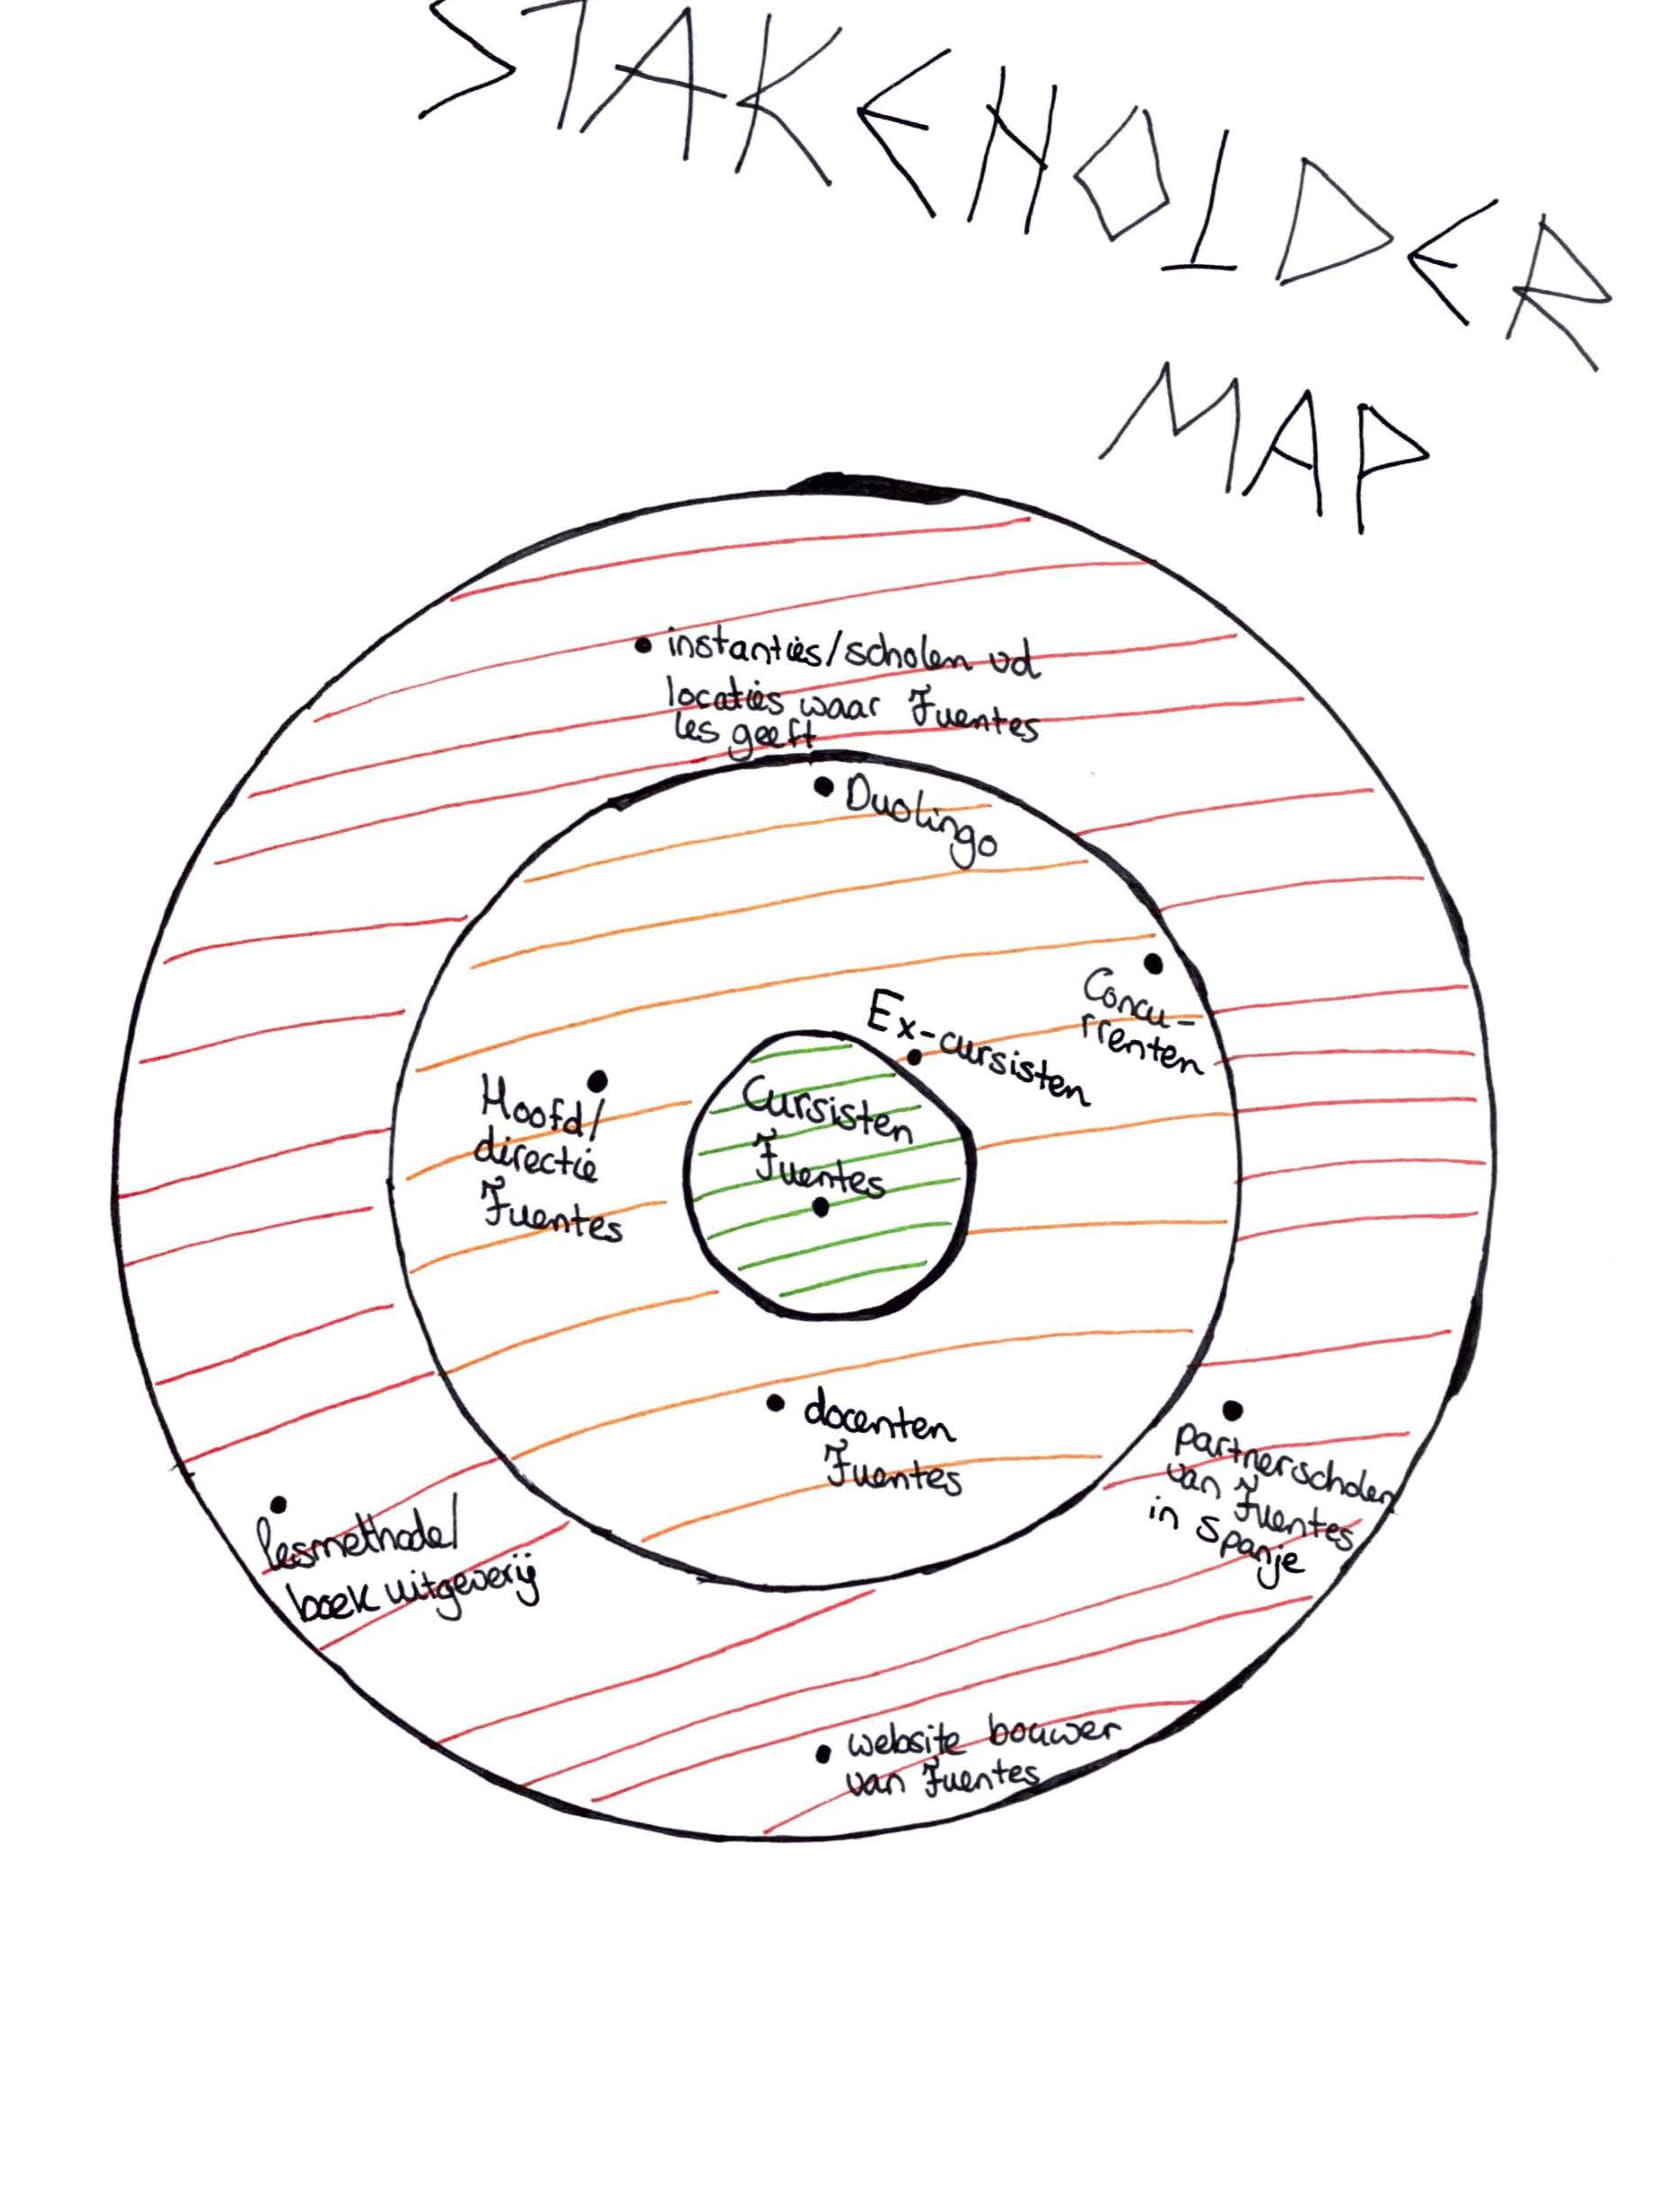 STAKEHOLDER
MAP
instanties/scholen vd
locaties waar Fuentes
les geeft
Duolingo
Concu-
rrenten
Ex-cursisten
Hoofd/
directie
Fuentes
Cursisten
Fuentes
docenten
Fuentes
partnerscholen
van Fuentes
in spanje
lesmethode/
boek uitgeverij
website bouwer
van Fuentes